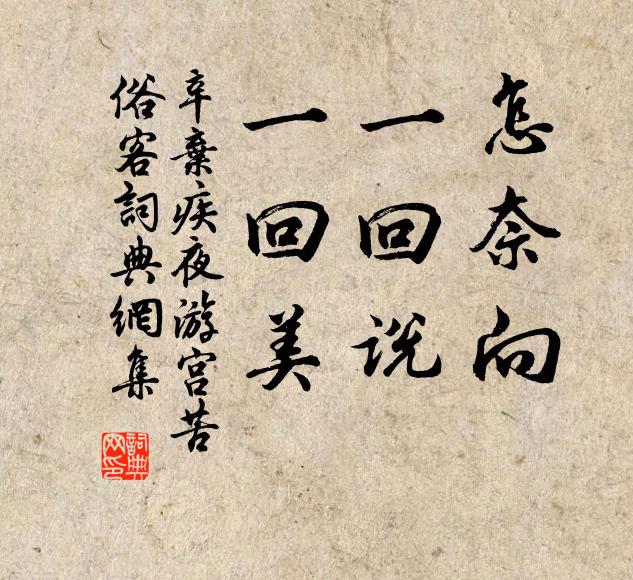 怎奈向
一回说
一回美
辛棄疾夜游宫苦
俗客詞典網集
詞典
网印